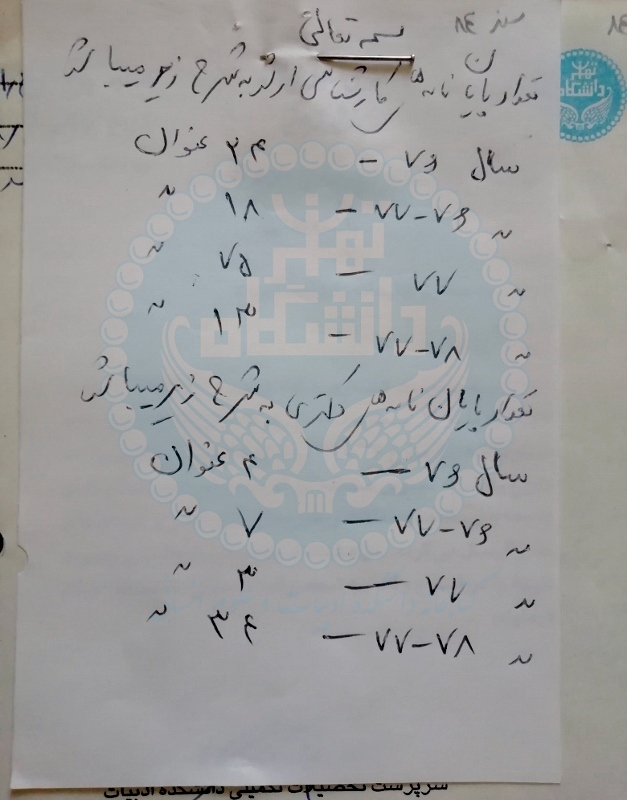 سند ۸۴
بسمه تعالی
تعداد پایان نامه های کارشناسی ارشد به شرح زیر میباشد
سال ۷۶ — ۳۴ عنوان
〃 ۷۶-۷۷ — ۱۸ 〃
〃 ۷۷ — ۷۵ 〃
〃 ۷۷-۷۸ — ۱۳ 〃
تعداد پایان نامه های دکتری به شرح زیر میباشد
سال ۷۶ — ۴ عنوان
〃 ۷۶-۷۷ — ۷ 〃
〃 ۷۷ — ۳ 〃
〃 ۷۷-۷۸ — ۳۴ 〃
سرپرست تحصیلات تکمیلی دانشکده ادبیات
دانشگاه تهران
۸۴
دانشگاه تهران